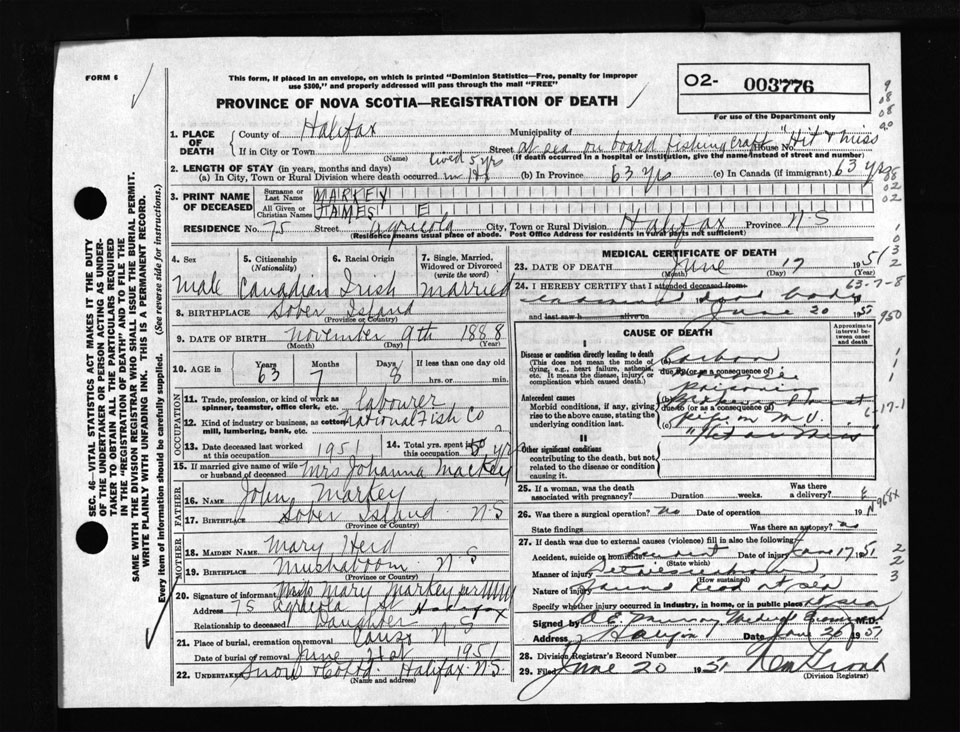 FORM 6
This form, if placed in an envelope, on which is printed "Dominion Statistics—Free, penalty for improper
use $300," and properly addressed will pass through the mail "FREE"
PROVINCE OF NOVA SCOTIA—REGISTRATION OF DEATH
O2- 003776
For use of the Department only
1. PLACE OF DEATH { County of Halifax Municipality of "Hit & Miss"
If in City or Town Street at sea on board fishing craft House No.
(Name) (If death occurred in a hospital or institution, give the name instead of street and number)
2. LENGTH OF STAY (in years, months and days) lived 5 yrs
(a) In City, Town or Rural Division where death occurred in Hx (b) In Province 63 yrs (c) In Canada (if immigrant) 63 yrs
3. PRINT NAME OF DECEASED { Surname or Last Name MARKEY
All Given or Christian Names JAMES E
RESIDENCE No. 75 Street Agricola City, Town or Rural Division Halifax Province N.S
(Residence means usual place of abode. Post Office Address for residents in rural parts not sufficient)
4. Sex 5. Citizenship (Nationality) 6. Racial Origin 7. Single, Married, Widowed or Divorced (write the word)
male Canadian Irish Married
8. BIRTHPLACE Sober Island
(Province or Country)
9. DATE OF BIRTH November 9th 1888
(Month) (Day) (Year)
10. AGE in { Years 63 Months 7 Days 8 If less than one day old
hrs. or min.
OCCUPATION
11. Trade, profession, or kind of work as spinner, teamster, office clerk, etc. labourer
12. Kind of industry or business, as cotton mill, lumbering, bank, etc. National Fish Co
13. Date deceased last worked at this occupation 1951 14. Total yrs. spent in this occupation 50 yrs
15. If married give name of wife or husband of deceased Mrs Johanna Mackey
FATHER
16. NAME John Markey
17. BIRTHPLACE Sober Island N.S
(Province or Country)
MOTHER
18. MAIDEN NAME Mary Heid
19. BIRTHPLACE Mushaboom N.S
(Province or Country)
20. Signature of informant Miss Mary Markey per
Address 75 Agricola St Halifax
Relationship to deceased Daughter N S
21. Place of burial, cremation or removal Canso N S
Date of burial or removal June 21st 1951
22. UNDERTAKER Snow & Co Ltd Halifax N.S
(Name and address)
MEDICAL CERTIFICATE OF DEATH
23. DATE OF DEATH June 17 1951
(Month) (Day) (Year)
24. I HEREBY CERTIFY that I attended deceased from
examined dead body
and last saw h alive on June 20 19
63-7-8
CAUSE OF DEATH
Approximate interval between onset and death
I
Disease or condition directly leading to death
(This does not mean the mode of dying, e.g., heart failure, asthenia, etc. It means the disease, injury, or complication which caused death.)
Carbon
due to (or as a consequence of)
Antecedent causes
Morbid conditions, if any, giving rise to the above cause, stating the underlying condition last.
poisoning
due to (or as a consequence of)
pipe on M.V.
(c)
II
Other significant conditions
contributing to the death, but not related to the disease or condition causing it.
25. If a woman, was the death associated with pregnancy? Duration weeks. Was there a delivery?
26. Was there a surgical operation? no Date of operation 19
State findings Was there an autopsy? no
27. If death was due to external causes (violence) fill in also the following:
Accident, suicide or homicide? Accident Date of injury June 17 1951
(State which)
Manner of injury
(How sustained)
Nature of injury Found dead at sea
Specify whether injury occurred in industry, in home, or in public place At sea
Signed by A E. Murray Medical Examiner M.D.
Address Halifax Date June 20 195
28. Division Registrar's Record Number
29. Filed June 20 1951
(Division Registrar)
SEC. 46—VITAL STATISTICS ACT MAKES IT THE DUTY
OF THE UNDERTAKER OR PERSON ACTING AS UNDER-
TAKER TO OBTAIN ALL THE PARTICULARS REQUIRED
IN THE "REGISTRATION OF DEATH" AND TO FILE THE
SAME WITH THE DIVISION REGISTRAR WHO SHALL ISSUE THE BURIAL PERMIT.
WRITE PLAINLY WITH UNFADING INK. THIS IS A PERMANENT RECORD.
Every item of information should be carefully supplied. (See reverse side for instructions.)